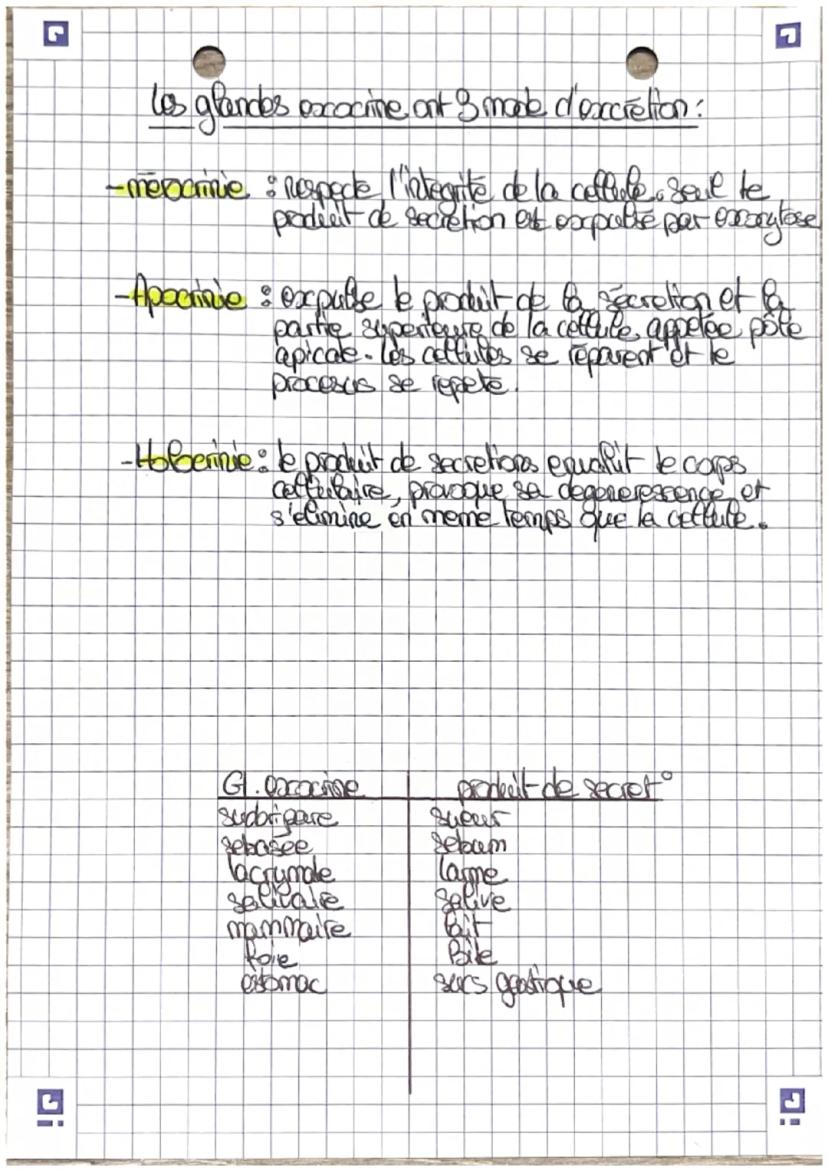 les glandes exocrine ont 3 mode d'excrétion :
- mérocrinie : respecte l'integrité de la cellule. seul le
produit de secrétion est expulsé par exocytose
- Apocrinie : expulse le produit de la sécretion et la
partie superieure de la cellule, appelée pôle
apicale. Les cellules se réparent et le
procesus se repete.
- Holocrinie : le produit de secretions envahit le corps
cellulaire, provoque sa degenerescence et
s'elimine en meme temps que la cellule.
Gl. exocrine produit de secret°
sudoripare sueur
sebasée sebum
lacrymale larme
salivaire salive
mammaire lait
foie Bile
estomac sucs gastrique